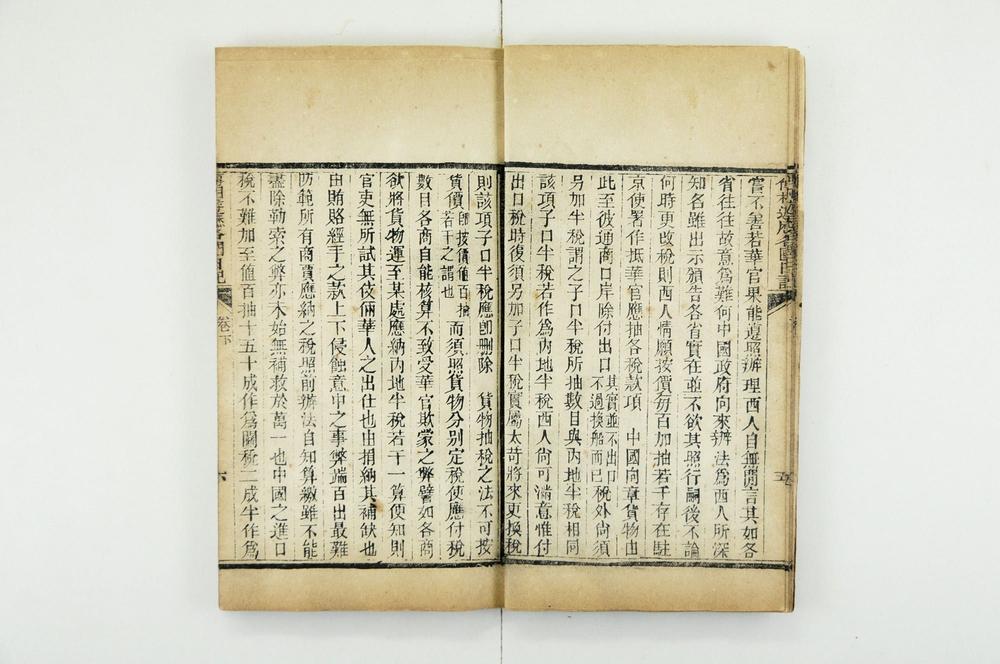 嘗不善若華官果能遵照辦理西人自無閒言其如各
省往往故意爲難何中國政府向來辦法爲西人所深
知名雖出示頒告各省實在並不欲其照行嗣後不論
何時更改稅則西人情願按價每百加抽若干存在駐
京使署作抵華官應抽各稅款項 中國向章貨物由
此至彼通商口岸除付出口其實並不出口不過換船而已稅外尙須
另加半稅謂之子口半稅所抽數目與內地半稅相同
該項子口半稅若作爲內地半稅西人尙可滿意惟付
出口稅時復須另加子口半稅實屬太苛將來更換稅
則該項子口半稅應卽刪除 貨物抽稅之法不可按
貨價卽按價値百抽若干之謂也而須照貨物分別定稅使應付稅
數目各商自能核算不致受華官欺蒙之弊譬如各商
欲將貨物運至某處應納內地半稅若干一算便知則
官吏無所試其伎倆華人之出仕也由捐納其補缺也
由賄賂經手之款上下侵蝕意中之事弊端百出最難
防範所有商賈應納之稅照前辦法自知算繳雖不能
盡除勒索之弊亦未始無補救於萬一也中國之進口
稅不難加至値百抽十五十成作爲關稅二成半作爲
卷下
六